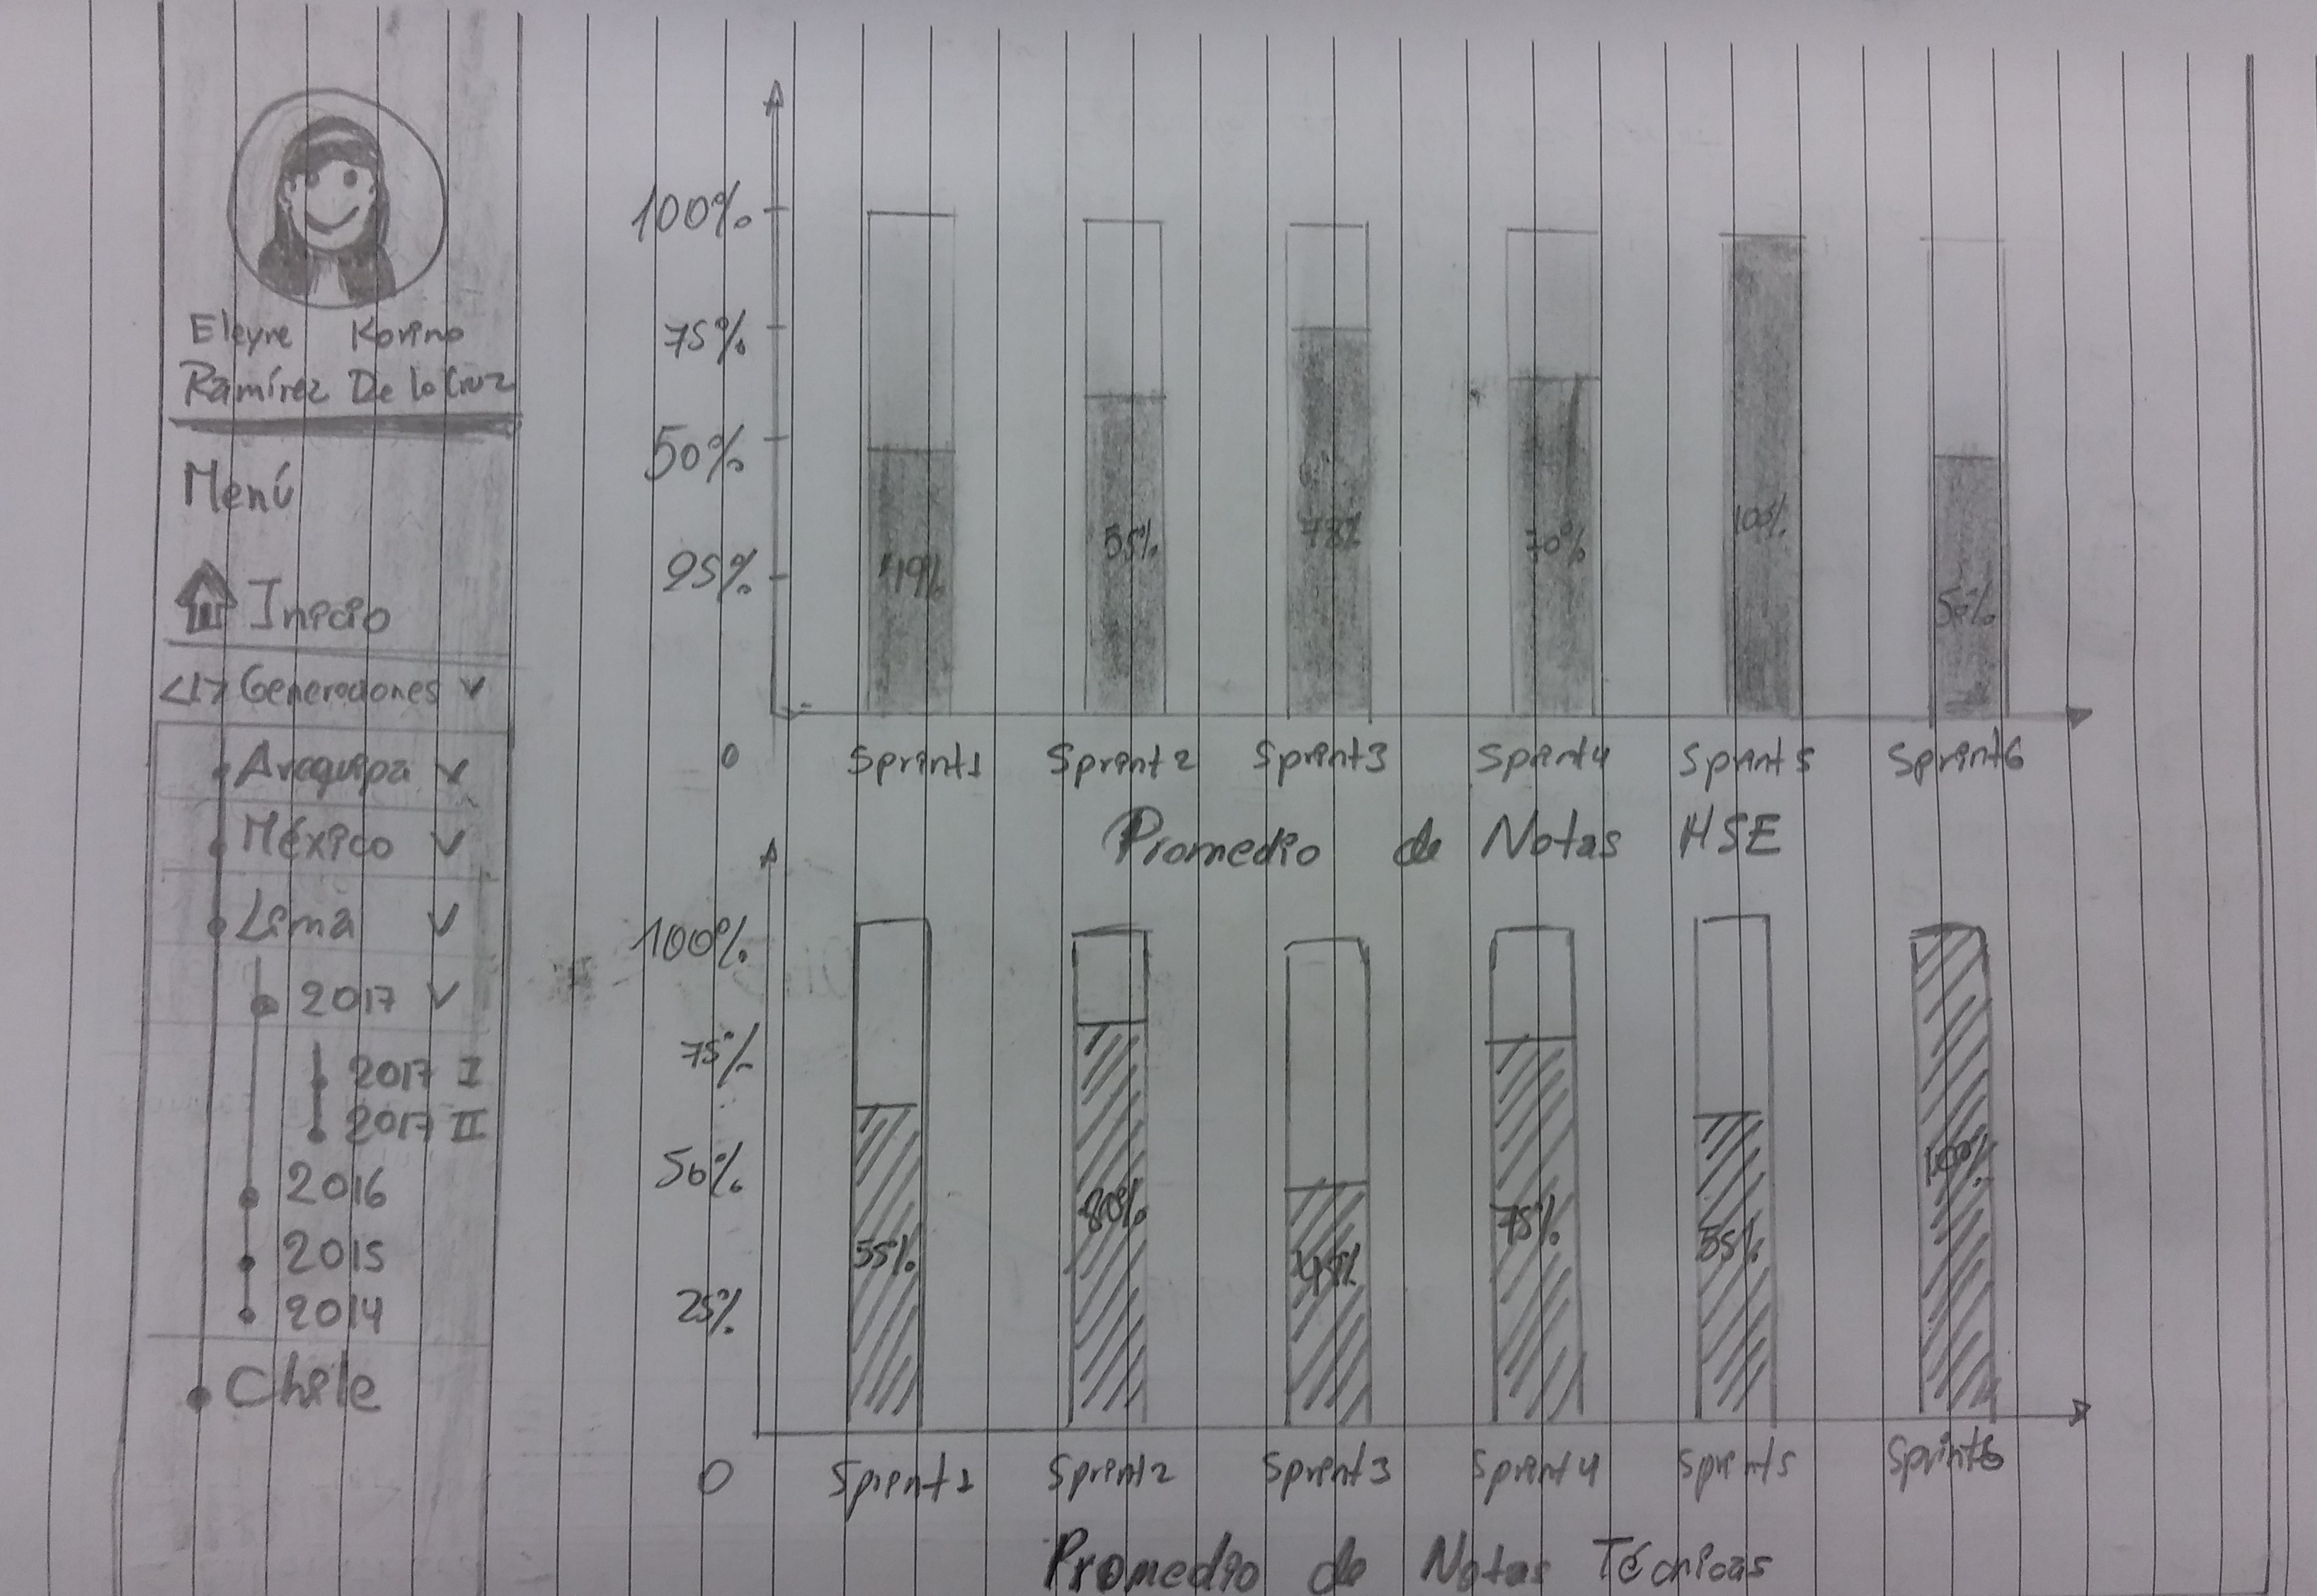 Eleyne Karina
Ramírez De la Cruz
Menú
Inicio
</> Generaciones v
Arequipa v
México v
Lima v
2017 v
2017 I
2017 II
2016
2015
2014
Chile
100%
75%
50%
25%
0
49% 55% 78% 70% 100% 50%
Sprint1 Sprint2 Sprint3 Sprint4 Sprint5 Sprint6
Promedio de Notas HSE
100%
75%
50%
25%
0
55% 80% 45% 75% 55% 100%
Sprint1 Sprint2 Sprint3 Sprint4 Sprint5 Sprint6
Promedio de Notas Técnicas